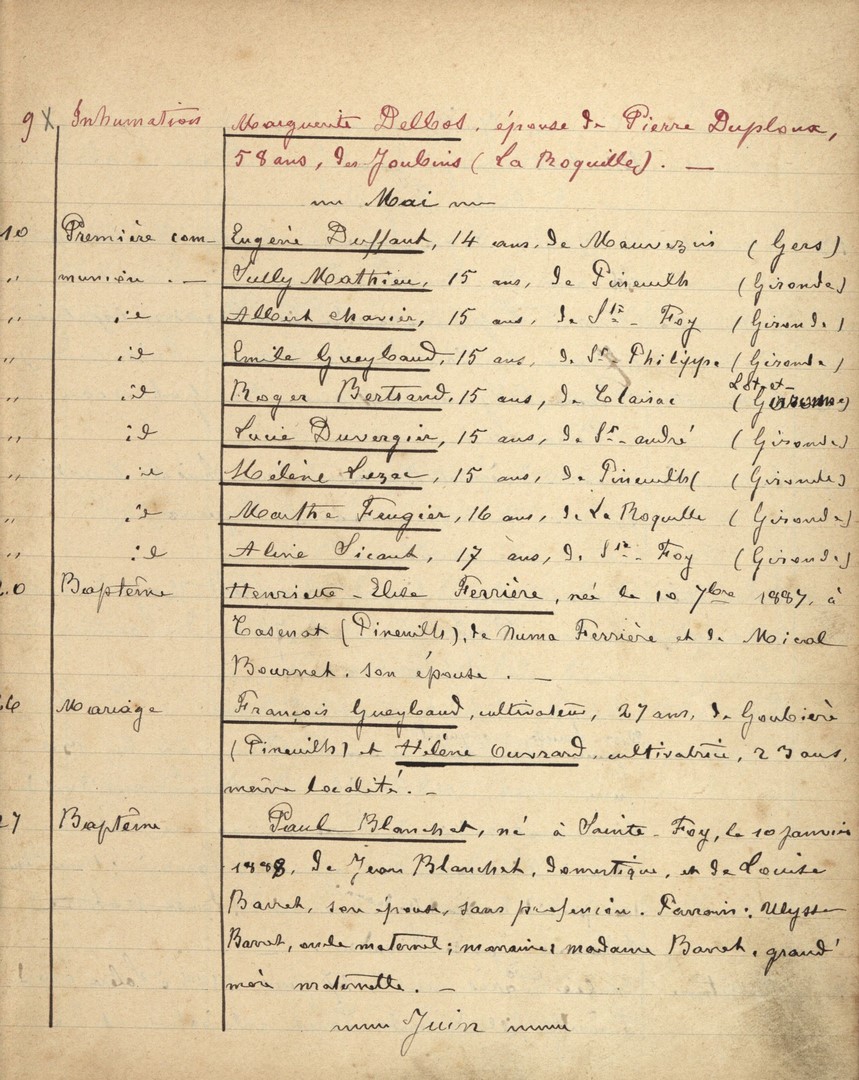 9 X Inhumation Marguerite Delbos, épouse de Pierre Duploux,
58 ans, des Joubins (La Roquille). —
Mai
10 Première com- Eugène Duffaut, 14 ans, de Mauvezin (Gers)
" munion. — Sully Mathieu, 15 ans, de Pineuilh (Gironde)
" id Albert Chavier, 15 ans, de Ste- Foy (Gironde)
" id Emile Gueylaud, 15 ans, de St- Philippe (Gironde)
" id Roger Bertrand, 15 ans, de (Lot-et-
" id Lucie Duvergier, 15 ans, de St- andré (Gironde)
" id Hélène Luzac, 15 ans, de Pineuilh (Gironde)
" id Marthe Feugier, 16 ans, de La Roquille (Gironde)
" id Aline Sicaut, 17 ans, de Ste- Foy (Gironde)
20 Baptême Henriette - Elisa Ferrière, née le 10 7bre 1887, à
(Pineuilh), de Numa Ferrière et de
Bournet, son épouse. —
26 Mariage François Gueylaud, cultivateur, 27 ans, de Goubière
(Pineuilh) et Hélène Ouvrard, cultivatrice, 23 ans,
même localité. —
27 Baptême Paul Blanchet, né à Sainte-Foy, le 10 janvier
1888, de Jean Blanchet, domestique, et de Louise
Barret, son épouse, sans profession. Parrain: Ulysse
Barret, oncle maternel; marraine: madame Barret, grand'
mère maternelle. —
Juin